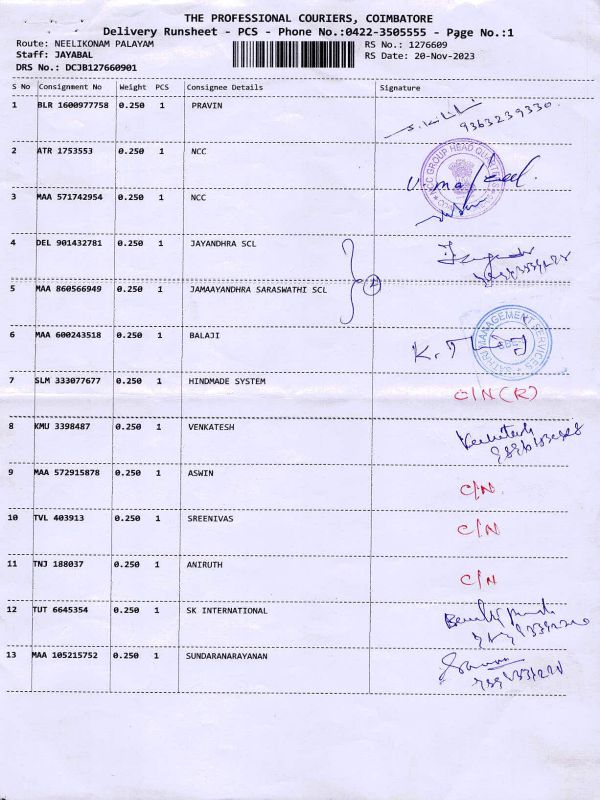 THE PROFESSIONAL COURIERS, COIMBATORE
Delivery Runsheet - PCS - Phone No.:0422-3505555 - Page No.:1
Route: NEELIKONAM PALAYAM RS No.: 1276609
Staff: JAYABAL RS Date: 20-Nov-2023
DRS No.: DCJB127660901
S No Consignment No Weight PCS Consignee Details Signature
1 BLR 1600977758 0.250 1 PRAVIN
9363239330
2 ATR 1753553 0.250 1 NCC
NCC GROUP HEAD QUARTERS
3 MAA 571742954 0.250 1 NCC
4 DEL 901432781 0.250 1 JAYANDHRA SCL
5 MAA 860566949 0.250 1 JAMAAYANDHRA SARASWATHI SCL
6 MAA 600243518 0.250 1 BALAJI
MANAGEMENT SERVICES
7 SLM 333077677 0.250 1 HINDMADE SYSTEM C/N (R)
8 KMU 3398487 0.250 1 VENKATESH
Venkatesh
9 MAA 572915878 0.250 1 ASWIN C/N
10 TVL 403913 0.250 1 SREENIVAS C/N
11 TNJ 188037 0.250 1 ANIRUTH C/N
12 TUT 6645354 0.250 1 SK INTERNATIONAL
13 MAA 105215752 0.250 1 SUNDARANARAYANAN